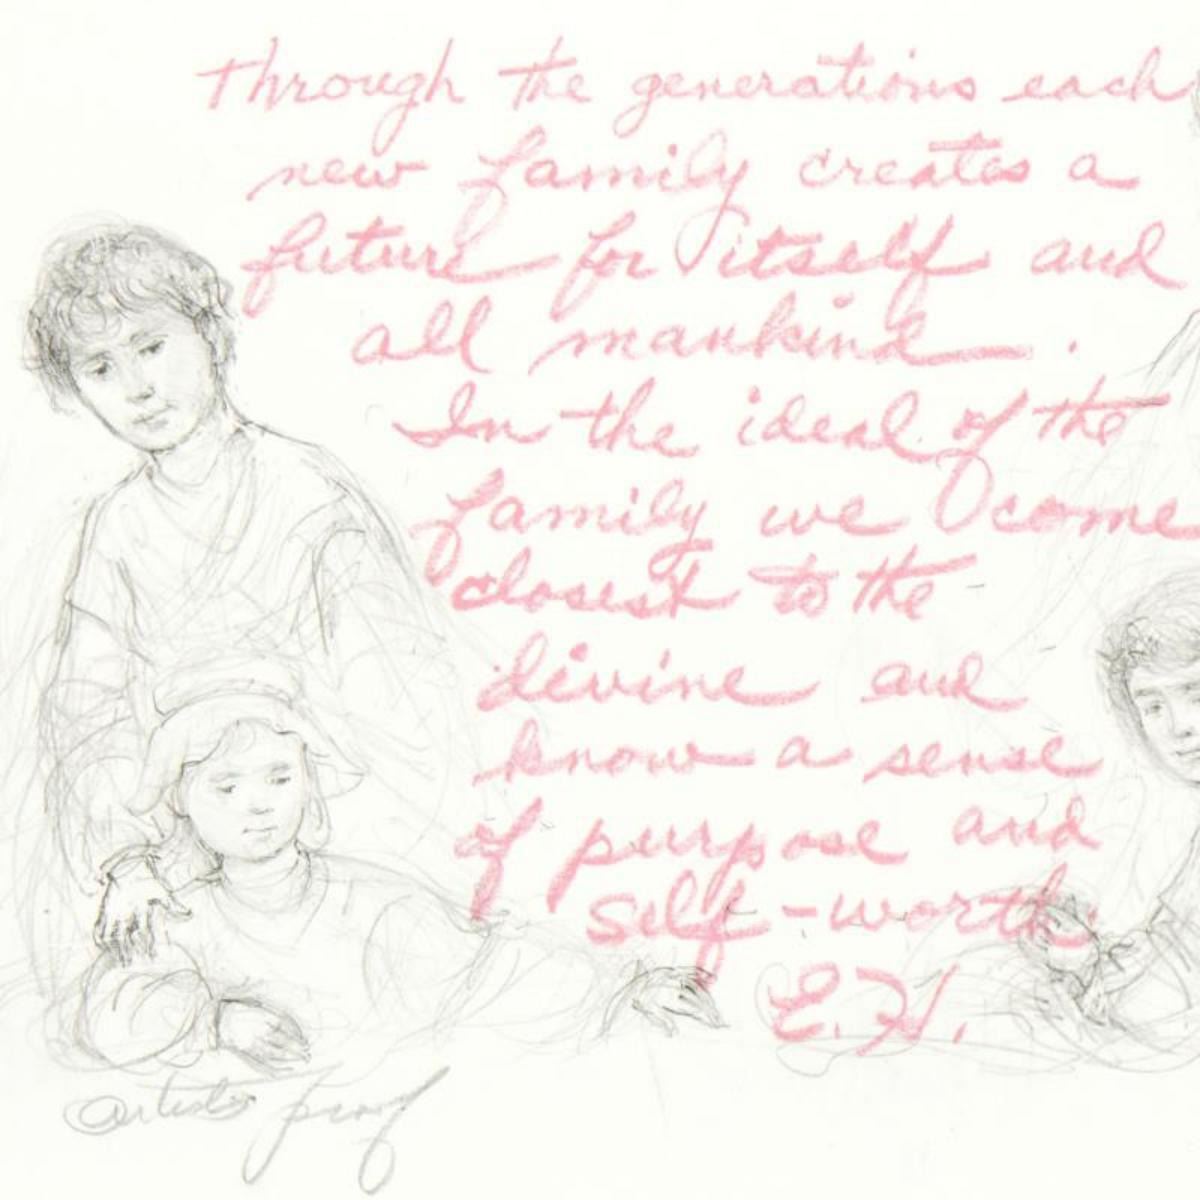 Through the generations each
new family creates a
future for itself and
all mankind.
In the ideal of the
family we come
closest to the
divine and
know a sense
of purpose and
self-worth.
E.H.
artist's proof